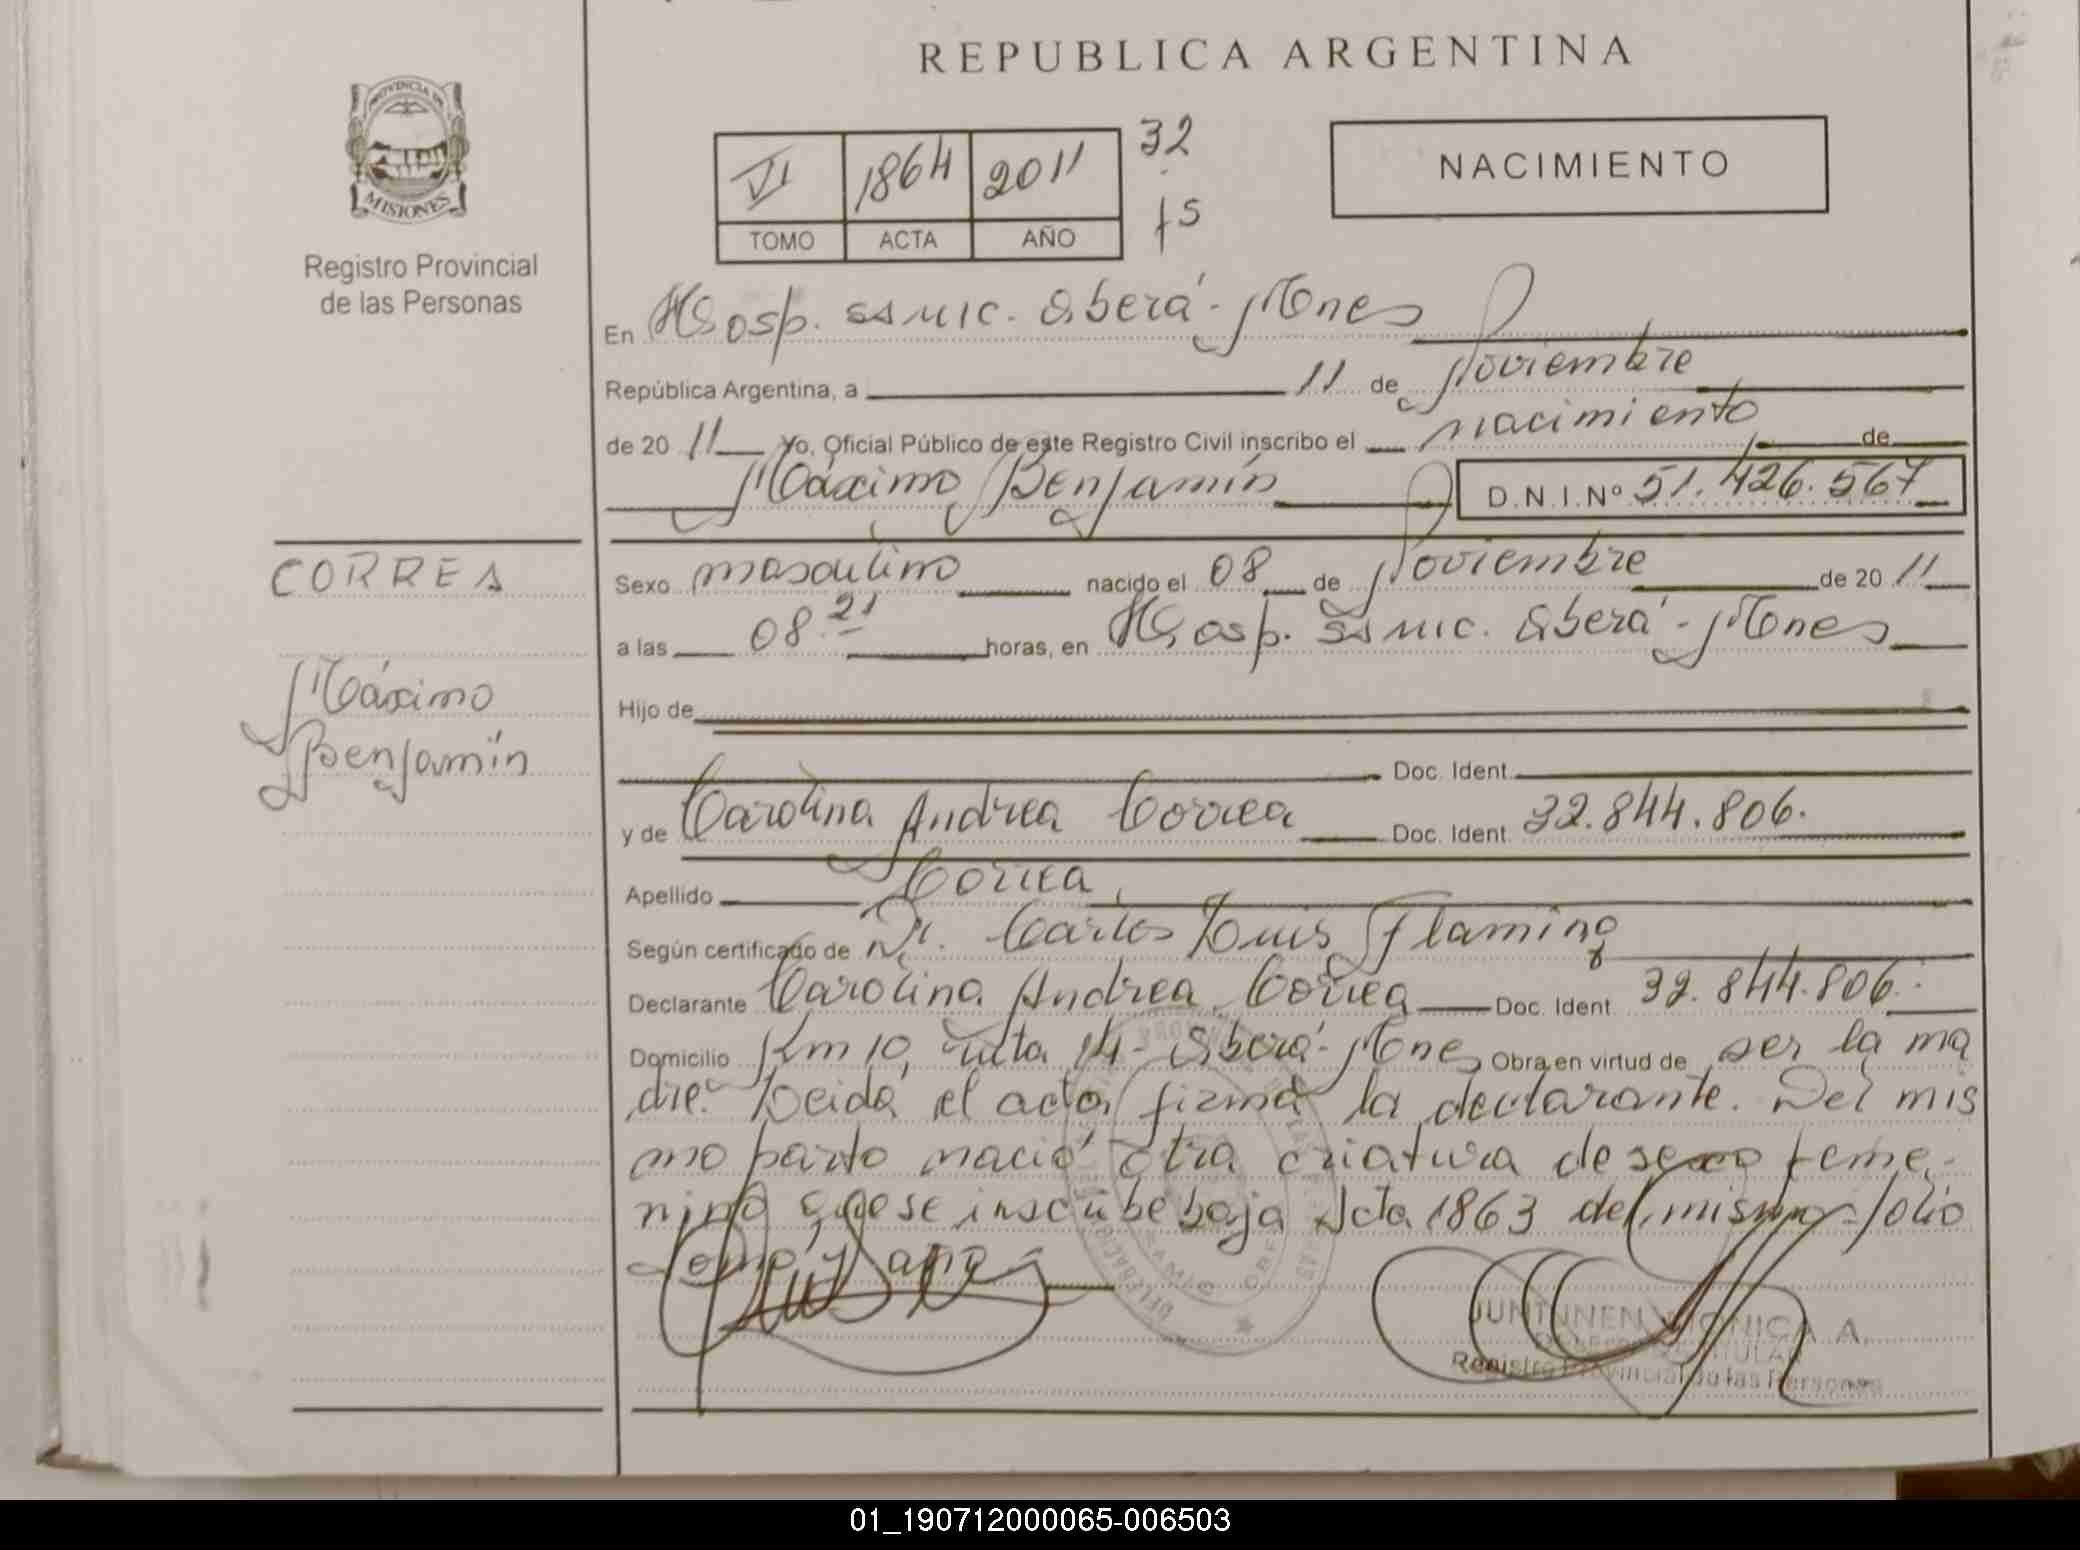 REPUBLICA ARGENTINA
PROVINCIA DE
MISIONES
Registro Provincial
de las Personas
VI 1864 2011
TOMO ACTA AÑO
32
f5
NACIMIENTO
En Hosp. SSMIC. Oberá - Mones
República Argentina, a 11 de Noviembre
de 20 11 Yo, Oficial Público de este Registro Civil inscribo el nacimiento de
Máximo Benjamín D.N.I.Nº 51.426.567
CORREA
Máximo
Benjamín
Sexo masculino nacido el 08 de Noviembre de 20 11
a las 08.21 horas, en Hosp. SSMIC. Oberá - Mones
Hijo de
Doc. Ident.
y de Carolina Andrea Correa Doc. Ident. 32.844.806.
Apellido Correa
Según certificado de Dr. Carlos Luis Flaming
Declarante Carolina Andrea Correa Doc. Ident. 32.844.806.
Domicilio Km 10, ruta 14 - Oberá - Mones Obra en virtud de ser la ma
dre. Leída el acta, firma la declarante. Del mis
mo parto nació otra criatura de sexo feme-
nino que se inscribe bajo Acta 1863 del mismo folio
JUNTUNEN MONICA A.
Registro Provincial de las Personas
01_190712000065-006503